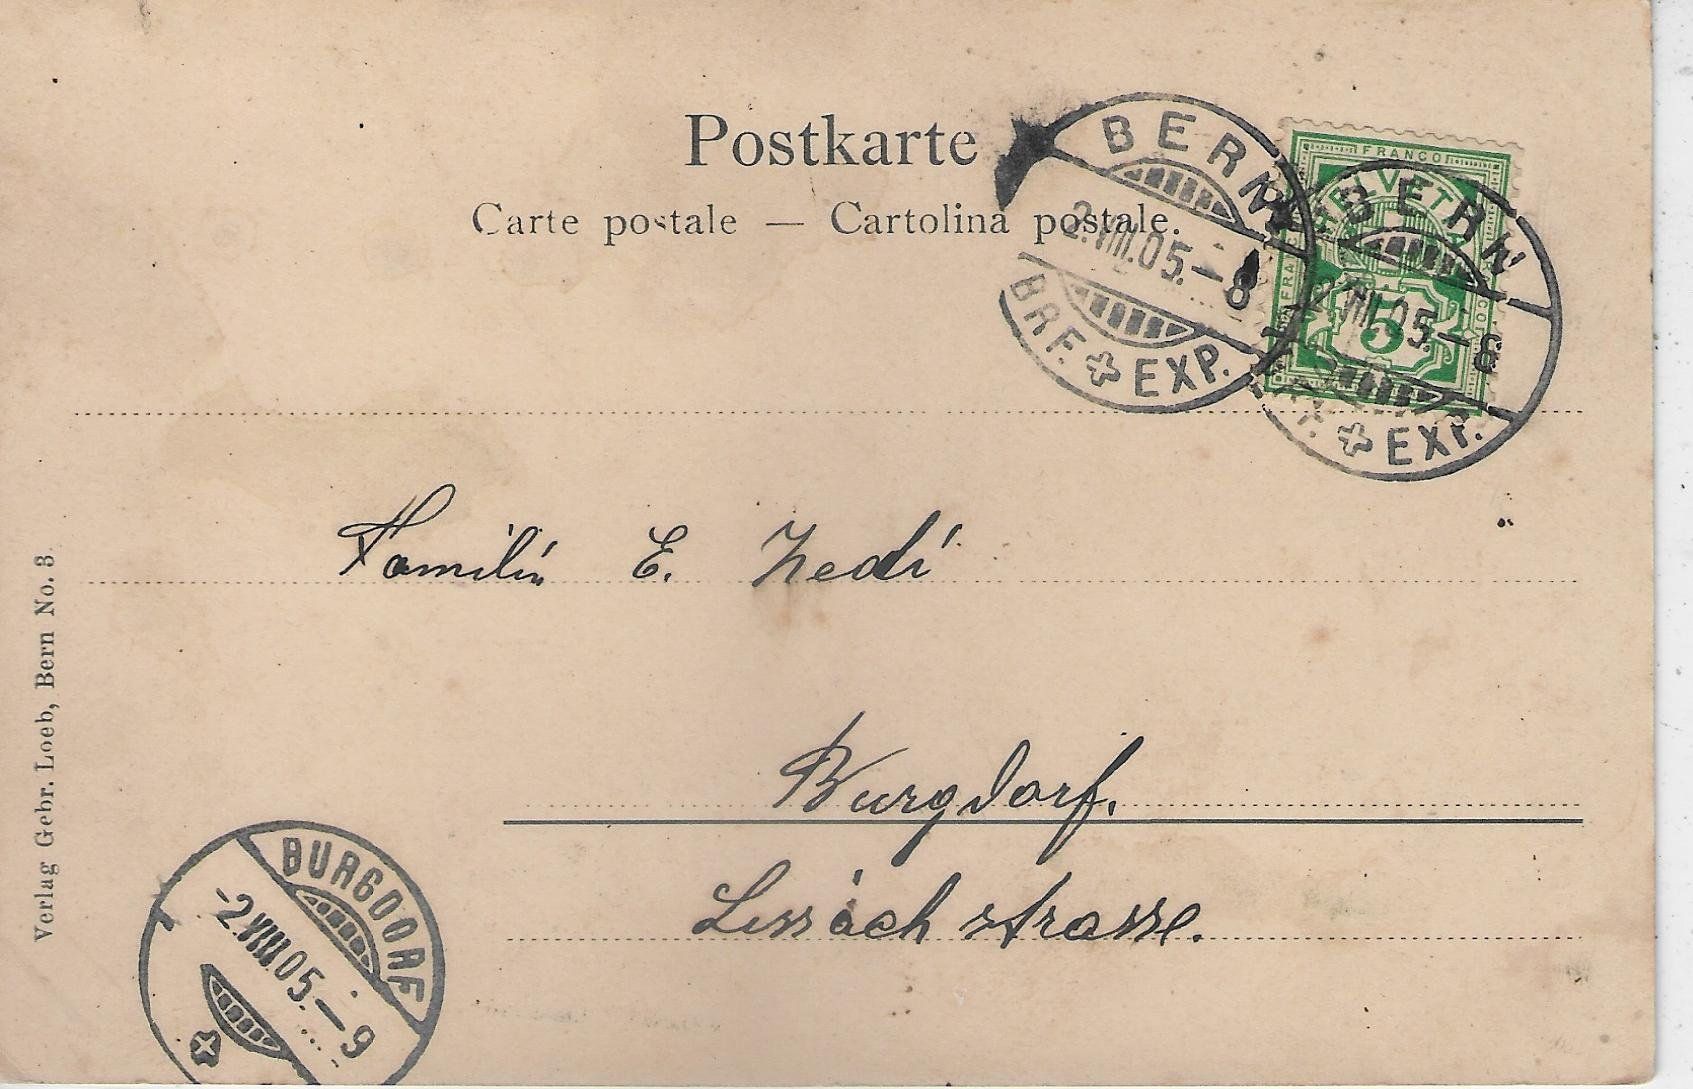 Postkarte
Carte postale — Cartolina postale.
BERN
2.VIII.05.–8
BRF. EXP.
FRANCO
HELVETIA
5
BERN
2.VIII.05.–8
EXP.
Familie E. Zedi
Burgdorf.
Lyssachstrasse.
Verlag Gebr. Loeb, Bern No. 3
BURGDORF
-2.VIII.05.–9